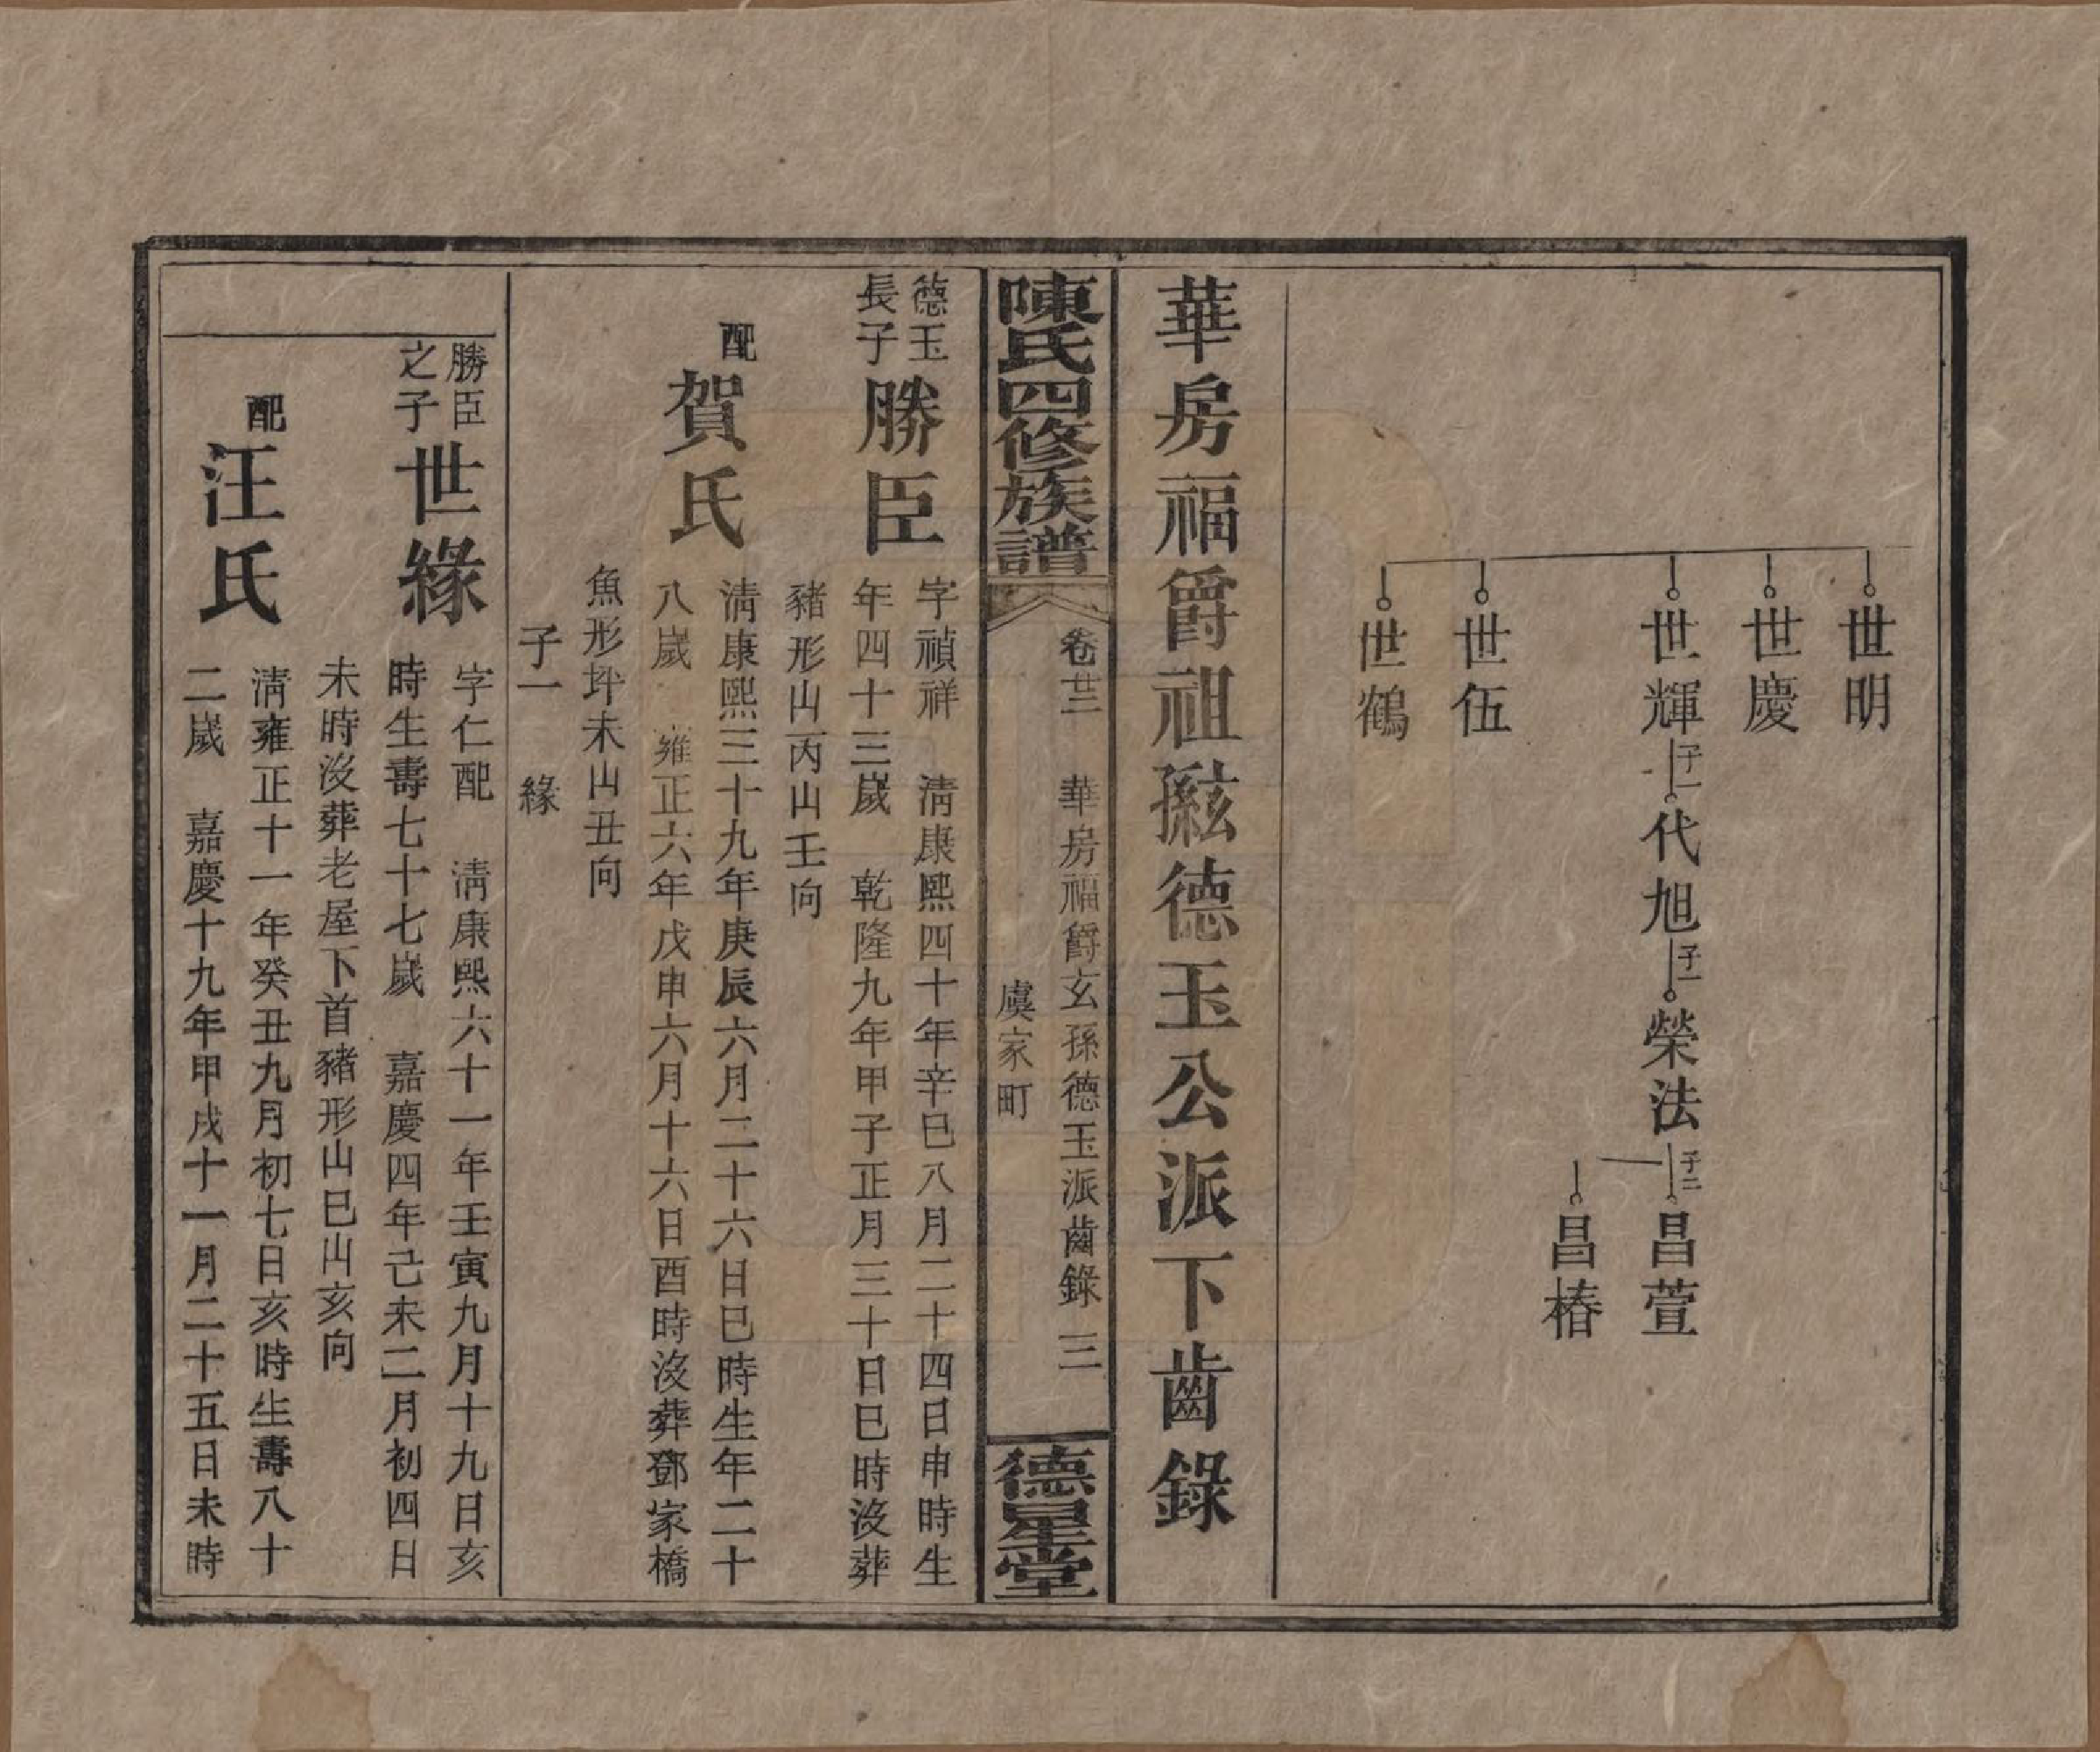 世明
世慶
世輝 子一 代旭 子一 榮法 子二 昌萱
昌椿
世伍
世鶴
華房福爵祖玄孫德玉公派下齒錄
陳氏四修族譜
卷廿三 華房福爵玄孫德玉派齒錄 三
虞家町
德星堂
德玉
長子
勝臣
字禎祥 淸康熙四十年辛巳八月二十四日申時生
年四十三歲 乾隆九年甲子正月三十日巳時沒葬
豬形山丙山壬向
配
賀氏
淸康熙三十九年庚辰六月二十六日巳時生年二十
八歲 雍正六年戊申六月十六日酉時沒葬鄧家橋
魚形坪未山丑向
子一 緣
勝臣
之子
世緣
字仁配 淸康熙六十一年壬寅九月十九日亥
時生壽七十七歲 嘉慶四年己未二月初四日
未時沒葬老屋下首豬形山巳山亥向
配
汪氏
淸雍正十一年癸丑九月初七日亥時生壽八十
二歲 嘉慶十九年甲戌十一月二十五日未時